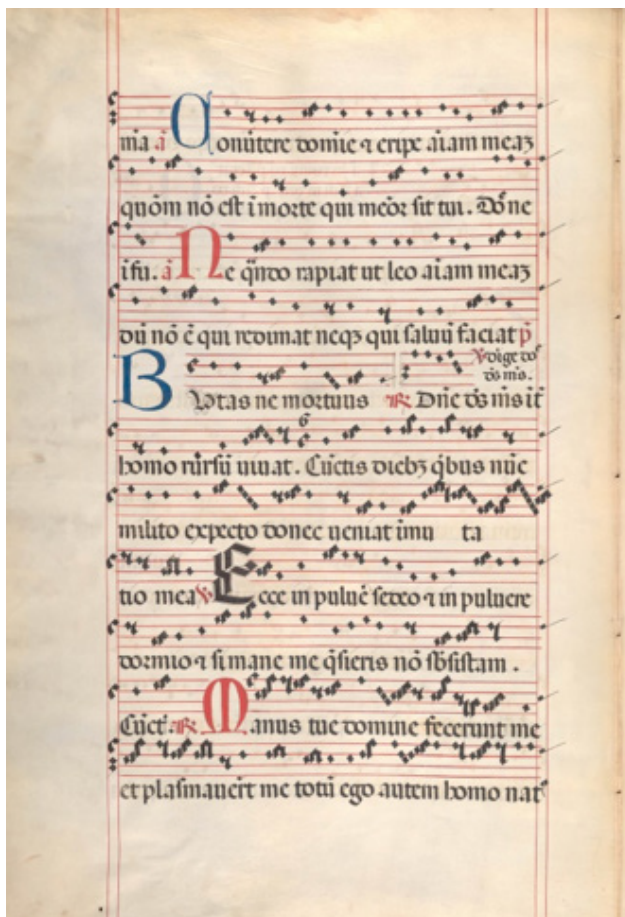 m̄a aᷓ Conūtere dom̄ie ⁊ eripe aīam meaꝫ
quōm nō est ī morte qui meōr sit tui. Dō ne
ī fu. aᷓ Ne q̄ndo rapiat ut leo aīam meaꝫ
dū nō ē qui redimat neqꝫ qui saluū faciat p̄
B
℣ dīge dō
d̄s m̄s.
Vtas ne mortuus ℟ Dn̄e d̄s m̄s ī t̄
homo rūrsū uiuat. Cūctis diebꝫ q̄bus nūc
milito expecto donec ueniat īmu ta
tio mea ℣ Ecce in puluē sedeo ⁊ in puluere
dormio ⁊ si mane me q̄sieris nō sb̄sistam.
Cūct̄. ℟ Manus tue domine fecerunt me
et plasmauer̄t me totū ego autem homo nat᷒